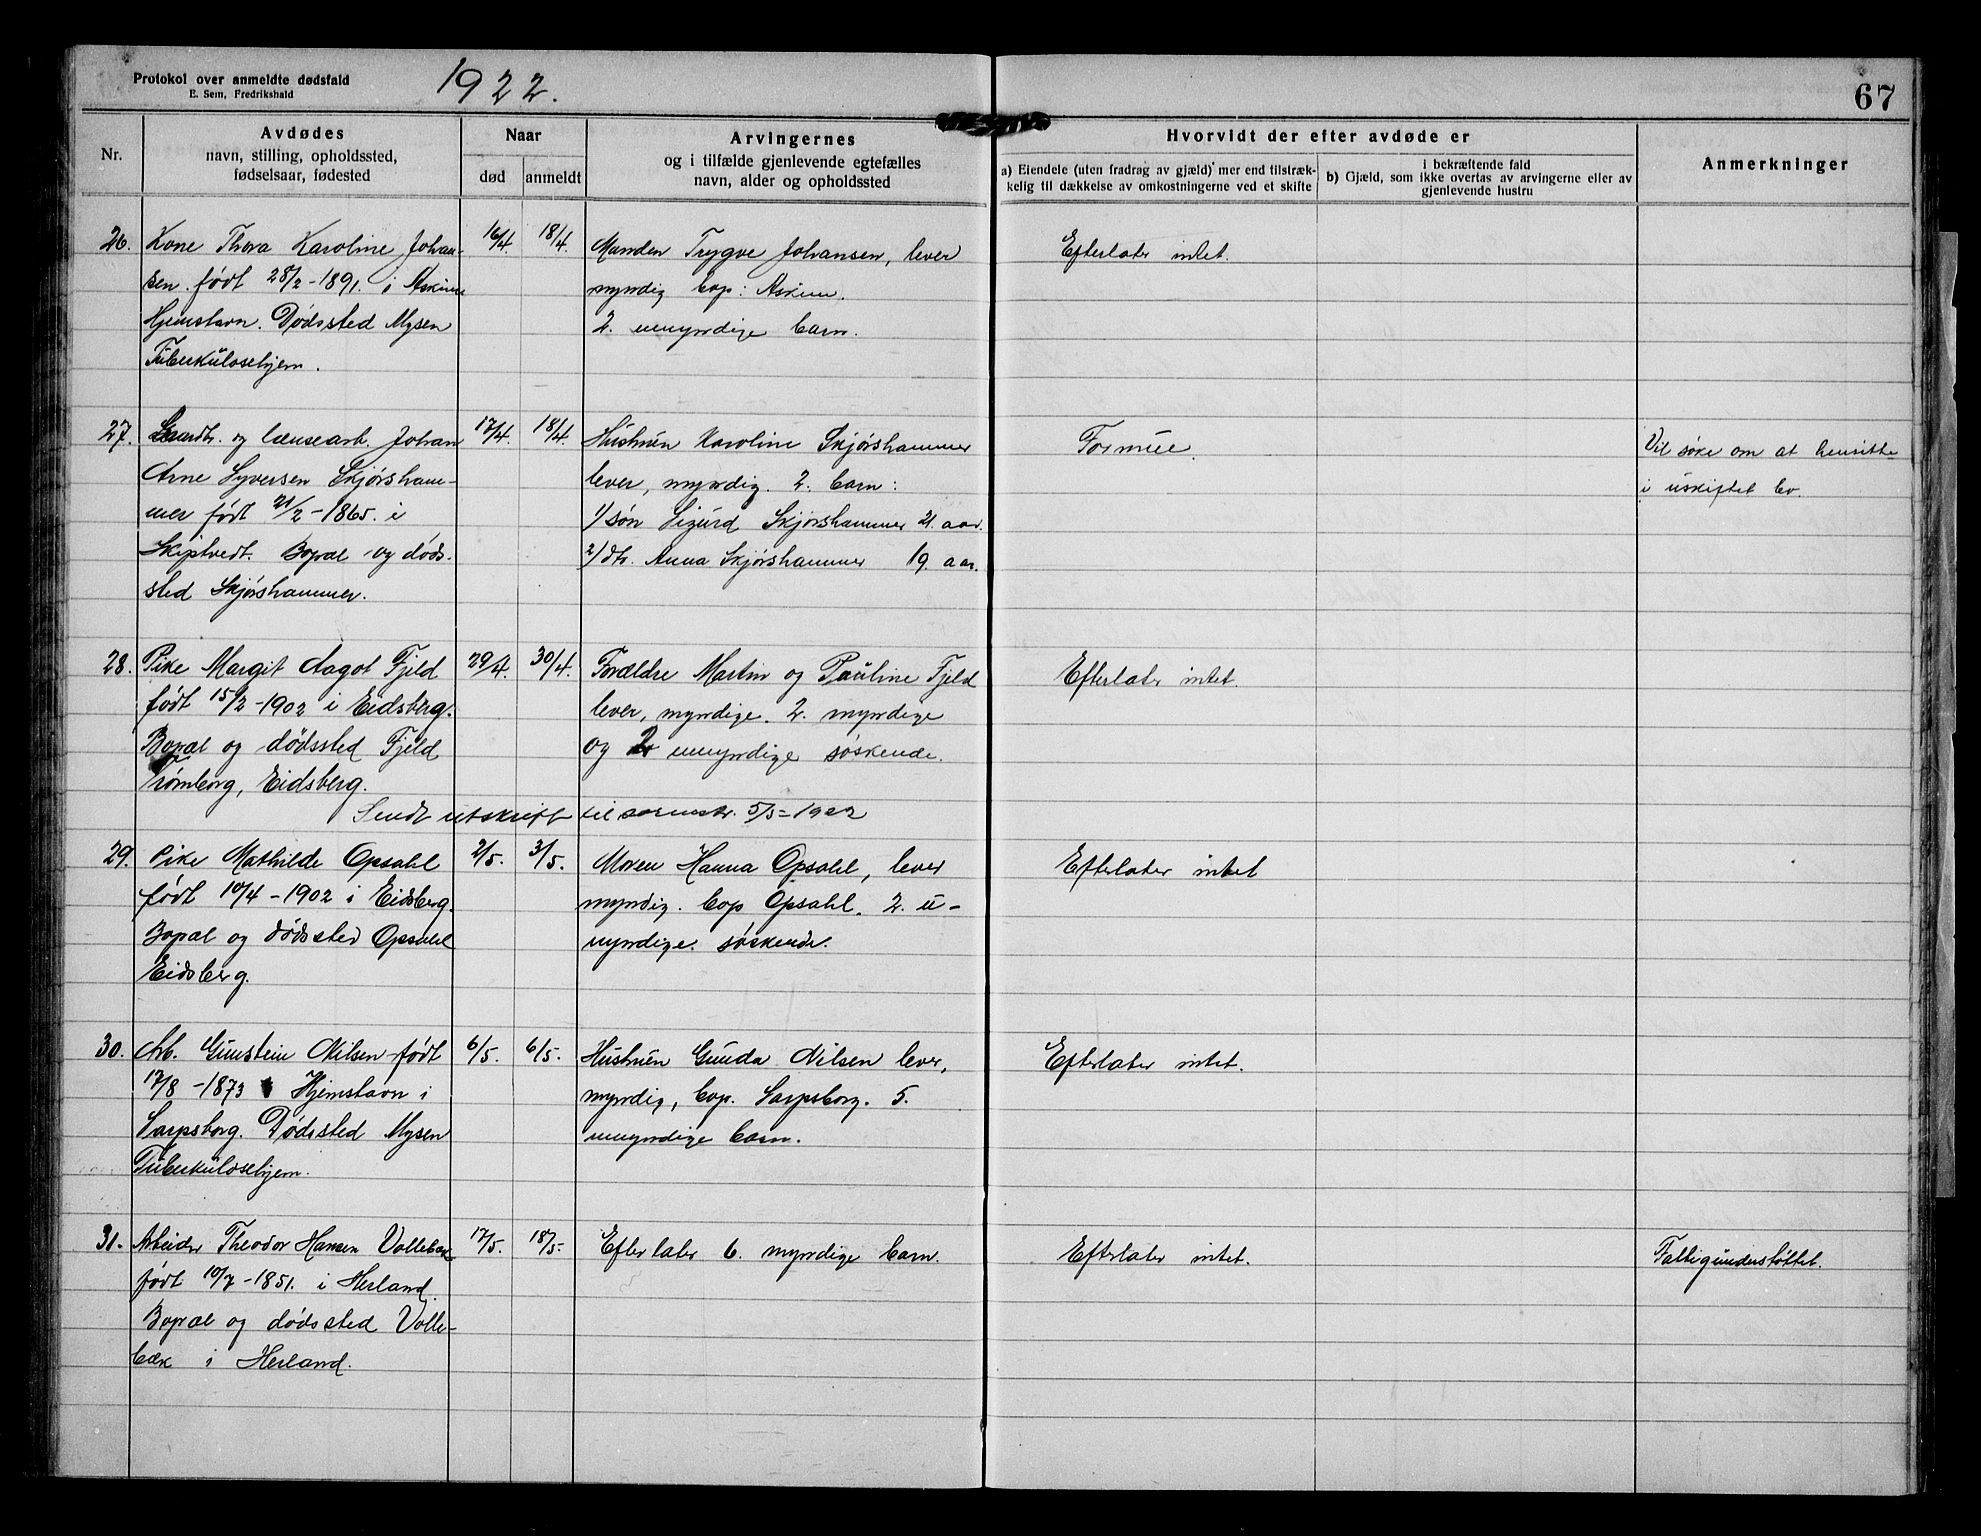 Protokol over anmeldte dødsfald
E. Sem, Fredrikshald
1922.
67
Nr.
Avdødes
navn, stilling, opholdssted,
fødselsaar, fødested
Naar
død
anmeldt
Arvingernes
og i tilfælde gjenlevende egtefælles
navn, alder og opholdssted
Hvorvidt der efter avdøde er
a) Eiendele (uten fradrag av gjæld) mer end tilstræk-
kelig til dækkelse av omkostningerne ved et skifte
i bekræftende fald
b) Gjæld, som ikke overtas av arvingerne eller av
gjenlevende hustru
Anmerkninger
26.
Kone Thora Karoline Johan-
sen født 28/2-1891. i Askim
Hjemstavn. Dødssted Mysen
Tuberkulosehjem.
16/4.
18/4.
Manden Trygve Johansen, lever
myndig bop: Askim.
2. umyndige barn.
Efterlater intet.
27.
og lænsearb. Johan
Arne Syversen Skjørsham-
mer født 21/2-1865. i
Skiptvedt. Bopæl og døds-
sted Skjørshammer.
17/4.
18/4.
Hustruen Karoline Skjørshammer
lever, myndig. 2. barn:
1/ søn Sigurd Skjørshammer 21. aar.
2/ dtr. Anna Skjørshammer 19. aar.
Formue.
Vil søke om at hensitte
i uskiftet bo.
28.
Pike Margit Aagot Fjeld
født 15/2-1902 i Eidsberg.
Bopæl og dødssted Fjeld
Trømborg, Eidsberg.
29/4.
30/4.
Forældre Martin og Pauline Fjeld
lever, myndige. 2. myndige
og 2 umyndige søskende.
Efterlater intet.
Sendt utskrift til sorenskr. 5/5-1922
29.
Pike Mathilde Opsahl
født 10/4-1902 i Eidsberg.
Bopæl og dødssted Opsahl
Eidsberg.
2/5.
3/5.
Moren Hanna Opsahl, lever
myndig. bop Opsahl. 2. u-
myndige. søskende.
Efterlater intet
30.
Arb. Gunstein Nilsen født
17/8-1873 Hjemstavn i
Sarpsborg. Dødssted Mysen
Tuberkulosehjem.
6/5.
6/5.
Hustruen Gunda Nilsen lever,
myndig, bop. Sarpsborg. 5.
umyndige barn.
Efterlater intet.
31.
Arbeider Theodor Hansen Vollebæk
født 10/7-1851. i Herland.
Bopæl og dødssted Volle-
bæk i Herland.
17/5.
18/5.
Efterlater 6. myndige barn.
Efterlater intet.
Fattigunderstøttet.